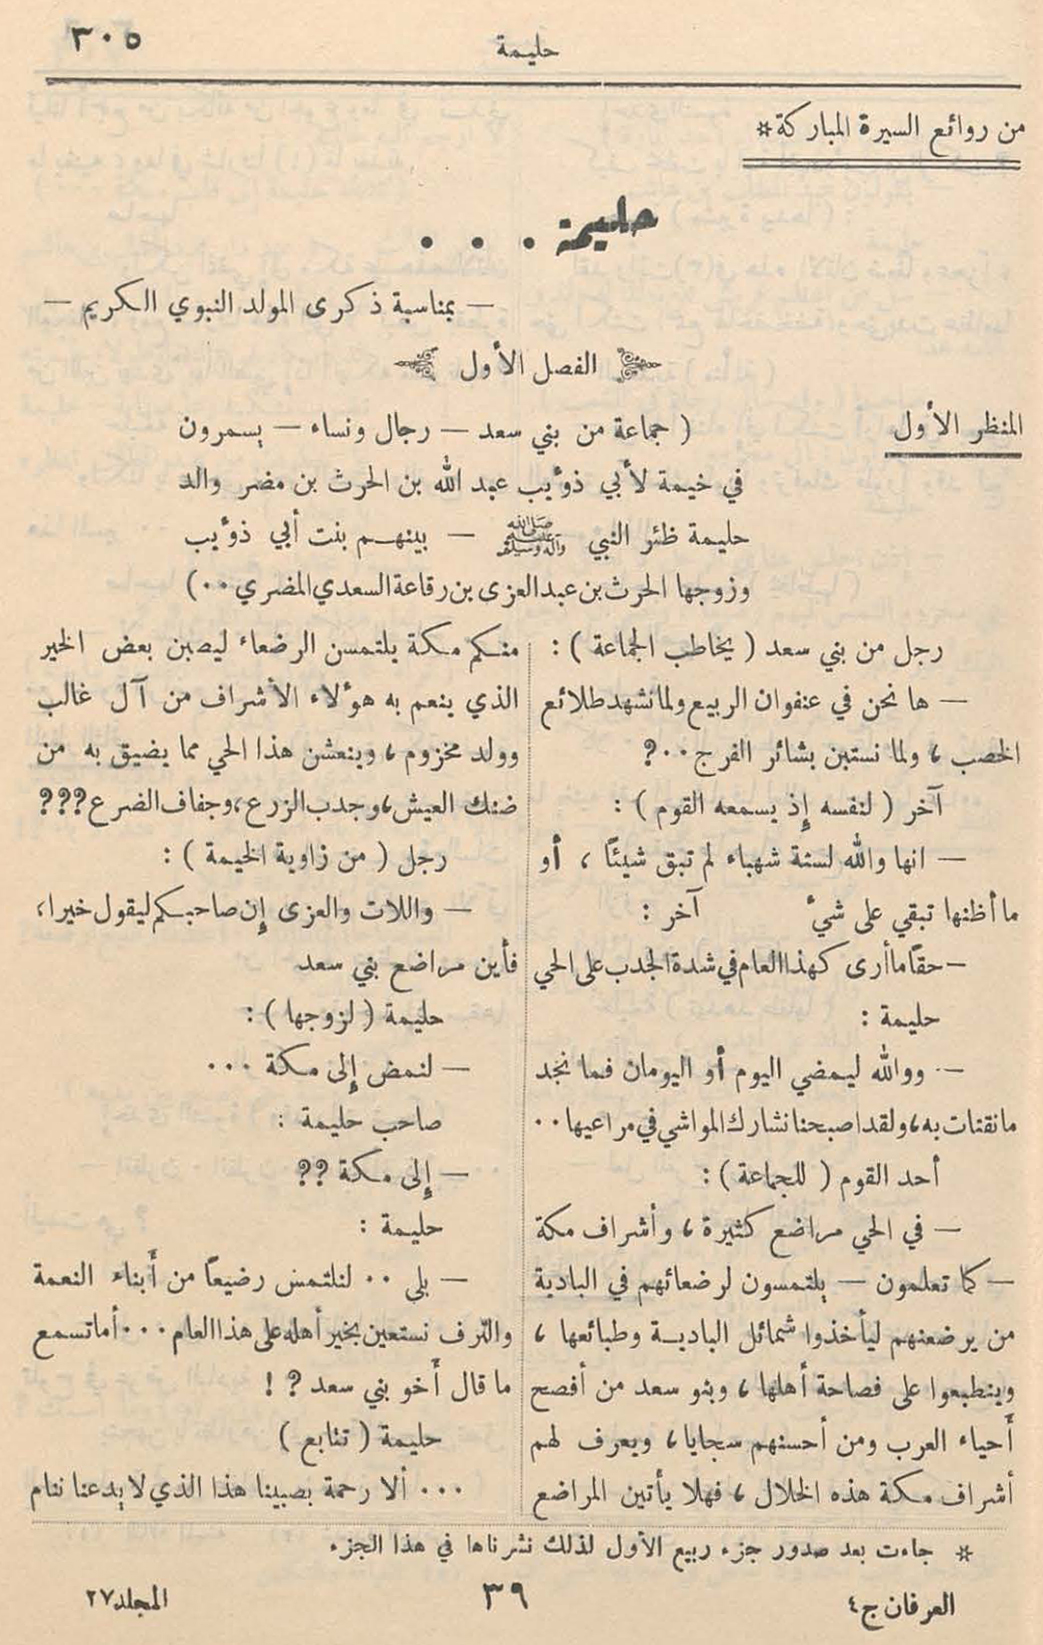 حليمة
٣٠٥
من روائع السيرة المباركة*
حليمة . . .
— بمناسبة ذكرى المولد النبوي الكريم —
الفصل الأول
المنظر الأول
( جماعة من بني سعد — رجال ونساء — يسمرون
في خيمة لأبي ذوءيب عبد الله بن الحرث بن مضر والد
حليمة ظئر النبي صلى الله عليه وآله وسلم — بينهم بنت أبي ذوءيب
وزوجها الحرث بن عبد العزى بن رقاعة السعدي المضري ٠٠)
رجل من بني سعد ( يخاطب الجماعة ) :
— ها نحن في عنفوان الربيع ولما نشهد طلائع
الخصب ، ولما نستبن بشائر الفرج ٠٠؟
آخر ( لنفسه إذ يسمعه القوم ) :
— انها والله لسنة شهباء لم تبق شيئًا ، أو
ما أظنها تبقي على شيء آخر :
— حقًا ما أرى كهذا العام في شدة الجدب على الحي
حليمة :
— ووالله ليمضي اليوم أو اليومان فما نجد
ما نقتات به، ولقد اصبحنا نشارك المواشي في مراعيها ٠٠
أحد القوم ( للجماعة ) :
— في الحي مراضع كثيرة ، وأشراف مكة
— كما تعلمون — يلتمسون لرضعائهم في البادية
من يرضعنهم ليأخذوا شمائل البادية وطبائعها ،
وينطبعوا على فصاحة أهلها ، وبنو سعد من أفصح
أحياء العرب ومن أحسنهم سجايا ، ويعرف لهم
أشراف مكة هذه الخلال ، فهلا يأتين المراضع
منكم مكة يلتمسن الرضعاء ليصبن بعض الخير
الذي ينعم به هوءلاء الأشراف من آل غالب
وولد مخزوم ، وينعشن هذا الحي مما يضيق به من
ضنك العيش، وجدب الزرع، وجفاف الضرع ???
رجل ( من زاوية الخيمة ) :
— واللات والعزى إن صاحبكم ليقول خيرا،
فأين مراضع بني سعد
حليمة ( لزوجها ) :
— لنمض إلى مكة ٠٠٠
صاحب حليمة :
— إلى مكة ??
حليمة :
— بلى ٠٠ لنلتمس رضيعًا من أبناء النعمة
والترف نستعين بخير أهله على هذا العام ٠٠٠ أما تسمع
ما قال أخو بني سعد ? !
حليمة ( تتابع )
٠٠٠ ألا رحمة بصبينا هذا الذي لا يدعنا ننام
* جاءت بعد صدور جزء ربيع الأول لذلك نشرناها في هذا الجزء
العرفان ج٤
٣٩
المجلد ٢٧